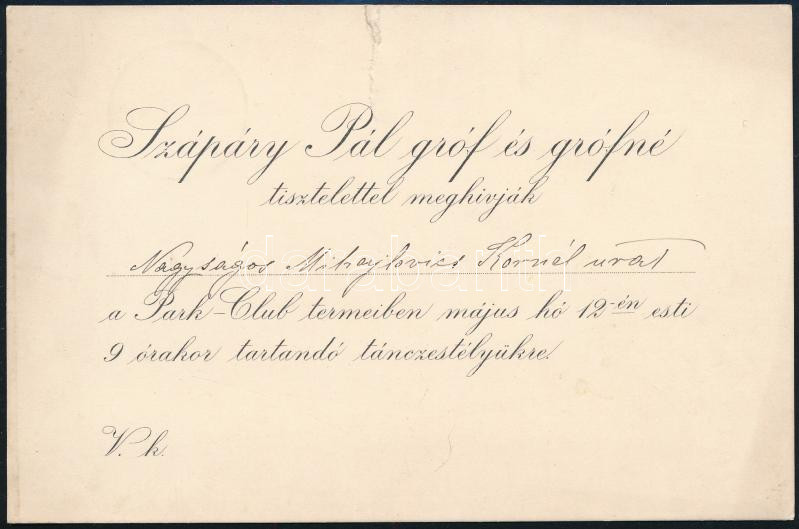 Szápáry Pál gróf és grófné
tisztelettel meghivják
Nagyságos Mihajlovics Kornél urat
a Park-Club termeiben május hó 12-én esti
9 órakor tartandó tánczestélyükre.
V. k.